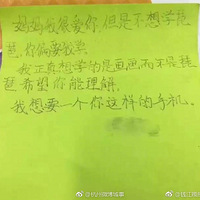 妈妈我很爱你,但是不想学琵
琶,你偏要我学。
我正真想学的是画画,而不是琵
琶希望你能理解。
我想要一个你这样的手机。
@杭州潮事
@钱江晚报